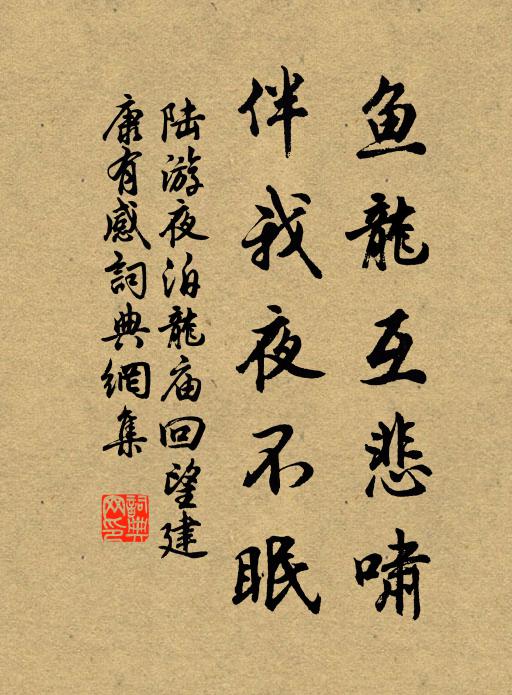 鱼龍互悲啸
伴我夜不眠
陆游夜泊龍庙回望建
康有感詞典網集
詞典
网印